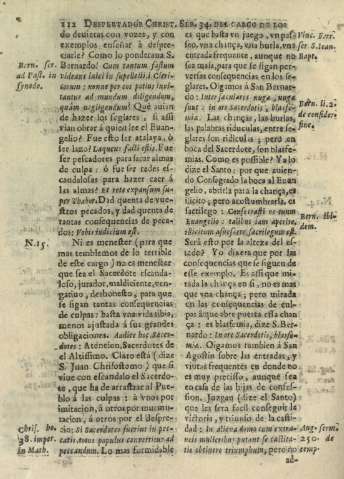 112 DESPERTADOR CHRIST. SER. 34. DEL CARGO DE LOS
do deuieras con vozes, y con
exemplos enseñar à despre-
ciarle? Como lo pondera S.
Bernardo! Cum tantum fastum
videant laici in supellectili Cleri-
corum: nonne per eos potius inci-
tantur ad mundum diligendum,
quàm negligendum! Què auian
de hazer los seglares, si assi
vian obrar à quien lee el Euan-
gelio? Fue esto ser atalaya, ò
ser lazo? Laqueus facti estis. Fue
ser pescadores para sacar almas
de culpas: ò fue ser redes es-
candalosas para hazer caer à
las almas? Et rete expansum su-
per Thabor. Dad quenta de vues-
tros pecados, y dad quenta de
tantas consequencias de peca-
dos: Vobis iudicium est.
Ni es menester (para que
mas temblemos de lo terrible
de este cargo) no es menester
que sea el Sacerdote escanda-
loso, jurador, maldiciente, ven-
gatiuo, deshonesto, para que
se sigan tantas consequencias
de culpas: basta vna vida tibia,
menos ajustada à sus grandes
obligaciones. Audite hoc Sacer-
dotes: Atencion, Sacerdotes de
el Altissimo. Claro està (dize
S. Juan Chrisostomo) que si
viue con escandalo el Sacerdo-
te, que ha de arrastrar al Pue-
blo à las culpas: à vnos por
imitacion, à otros por murmu-
racion, à otros por el despre-
cio: Si Sacerdotes fuerint in pec-
catis, totus populus conuertitur ad
peccandum. Lo mas formidable
es que basta vn juego, vn passo,
vna chança, vna burla, vna
entrada frequente, aunque no
sea mala, para que se sigan per-
versas consequencias en los se-
glares. Oigamos à San Bernar-
do: Inter saeculares nugae, nugae
sunt: in ore Sacerdotis, blasfe-
mia. Las chanças, las burlas,
las palabras ridiculas, entre se-
glares son ridiculas; pero en
boca del Sacerdote, son blasfe-
mias. Como es possible? Ya lo
dize el Santo: porque auien-
do Consagrado la boca al Euan-
gelio, abrirla para la chança, es
ilicito; pero acostumbrarla, es
sacrilegio: Consecrasti os tuum
Euangelio: talibus iam aperire,
illicitum, assuescere, sacrilegum est.
Serà esto por la alteza del es-
tado? Yo dixera que por las
consequencias que se siguen de
este exemplo. Es assi que mi-
rada la chança en si, no es mas
que vna chança; pero mirada
en las consequencias de cul-
pas à que abre puerta essa chan-
ça: es blasfemia, dize S. Ber-
nardo: In ore Sacerdotis, blasfe-
mia. Oigamos tambien à San
Agustin sobre las entradas, y
visitas frequentes en donde no
es muy precisso, aunque sea
en casa de las hijas de confes-
sion. Juzgan (dize el Santo)
que les serà facil conseguir la
victoria, y triunfo de la casti-
dad: In aliena domo cum extra-
neis mulieribus putant se castita-
tis obtinere triumphum, pero no
ad-
Bern. ser.
ad Past. in
synodo.
N. 15.
Chris. ho.
38. imper.
in Math.
Vinc. Ferr.
ser. S. Joan.
Bapt.
Bern. li. 2.
de conside-
Bern. ibi-
dem.
Aug. serm.
250. de
temp.